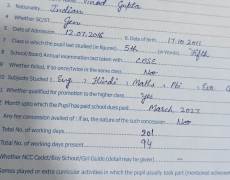 Vinod Gupta
3. Nationality Indian
4. Whether SC/ST Gen
5. Date of Admission 12.07.2016 6. Date of Birth 17.10.2011
Class in which the pupil last studied (in figures) 5th (in Words) Fifth
School/Board Annual examination last taken with CBSE
Whether failed, if so once/twice in the same class No
10. Subjects Studied 1. Eng Hindi Maths
Whether qualified for promotion to the higher class Yes
Month upto which the Pupil has paid school dues March
Any fee concession availed of : if so, the nature of the such concession No
Total No. of working days 201
Total No. of working days present 94
Whether NCC Cadet/Boy Scout/Girl Guide (detail may be given) —
Games played or extra curricular activities in which the pupil usually took part